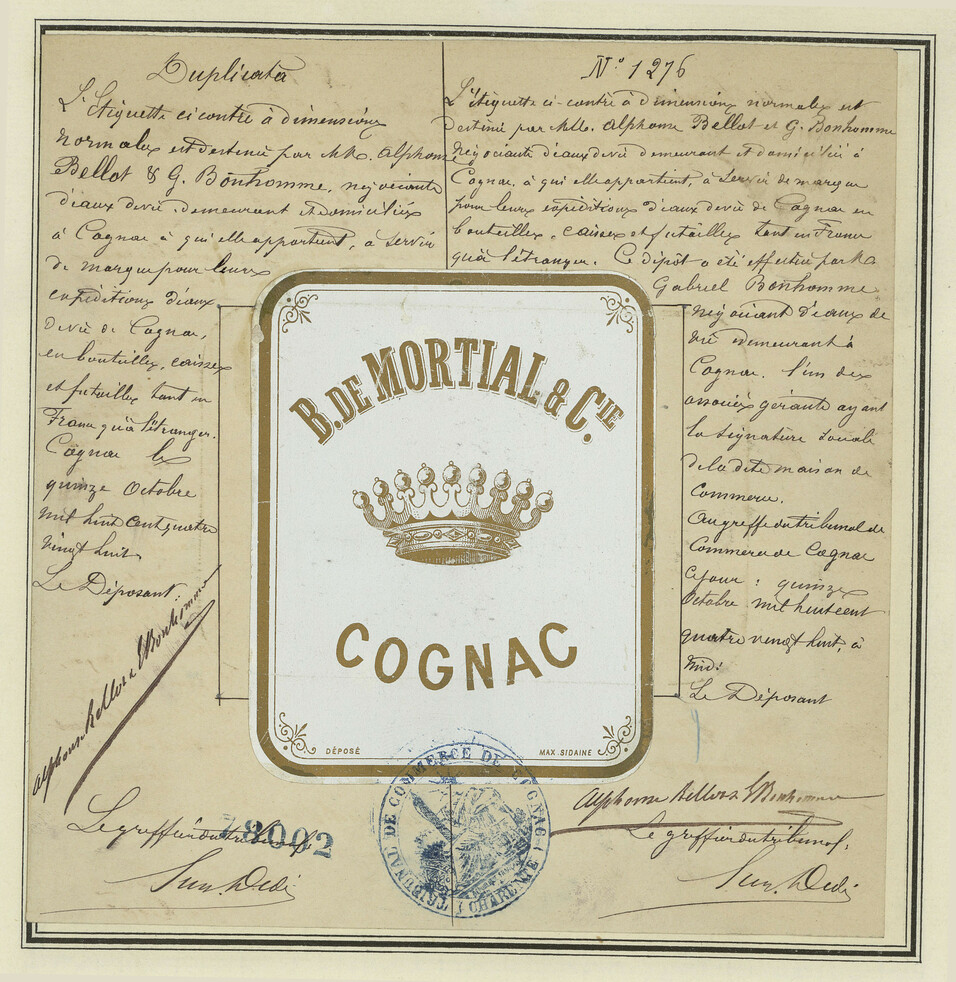 Duplicata
L'Etiquette ci contre à dimensions
normales est destinée par MM. Alphonse
Bellot & G. Bonhomme, négociants
d'eaux de vie demeurant et domiciliés
à Cognac à qui elle appartient, à servir
de marque pour leurs
expéditions d'eaux
de vie de Cognac,
en bouteilles, caisses
et futailles tant en
France qu'à l'étranger.
Cognac le
quinze Octobre
mil huit cent quatre
vingt huit.
Le Déposant:
Alphonse Bellot & G Bonhomme
Le greffier du tribunal
78002
No 1276
L'étiquette ci-contre à dimensions normales est
destinée par MM. Alphonse Bellot et G. Bonhomme
négociants d'eaux de vie demeurant et domiciliés à
Cognac, à qui elle appartient, à servir de marque
pour leurs expéditions d'eaux de vie de Cognac en
bouteilles, caisses et futailles tant en France
qu'à l'étranger. Ce dépôt a été effectué par M.
Gabriel Bonhomme
négociant d'eaux de
vie demeurant à
Cognac, l'un des
associés gérants ayant
la signature sociale
de la dite maison de
Commerce.
Au greffe du tribunal de
Commerce de Cognac
Ce jour: quinze
Octobre mil huit cent
quatre vingt huit, à
midi.
Le Déposant
Alphonse Bellot & G Bonhomme
Le greffier du tribunal:
B. DE MORTIAL & CIE.
COGNAC
DÉPOSÉ
MAX. SIDAINE
TRIBUNAL DE COMMERCE DE COGNAC
CHARENTE